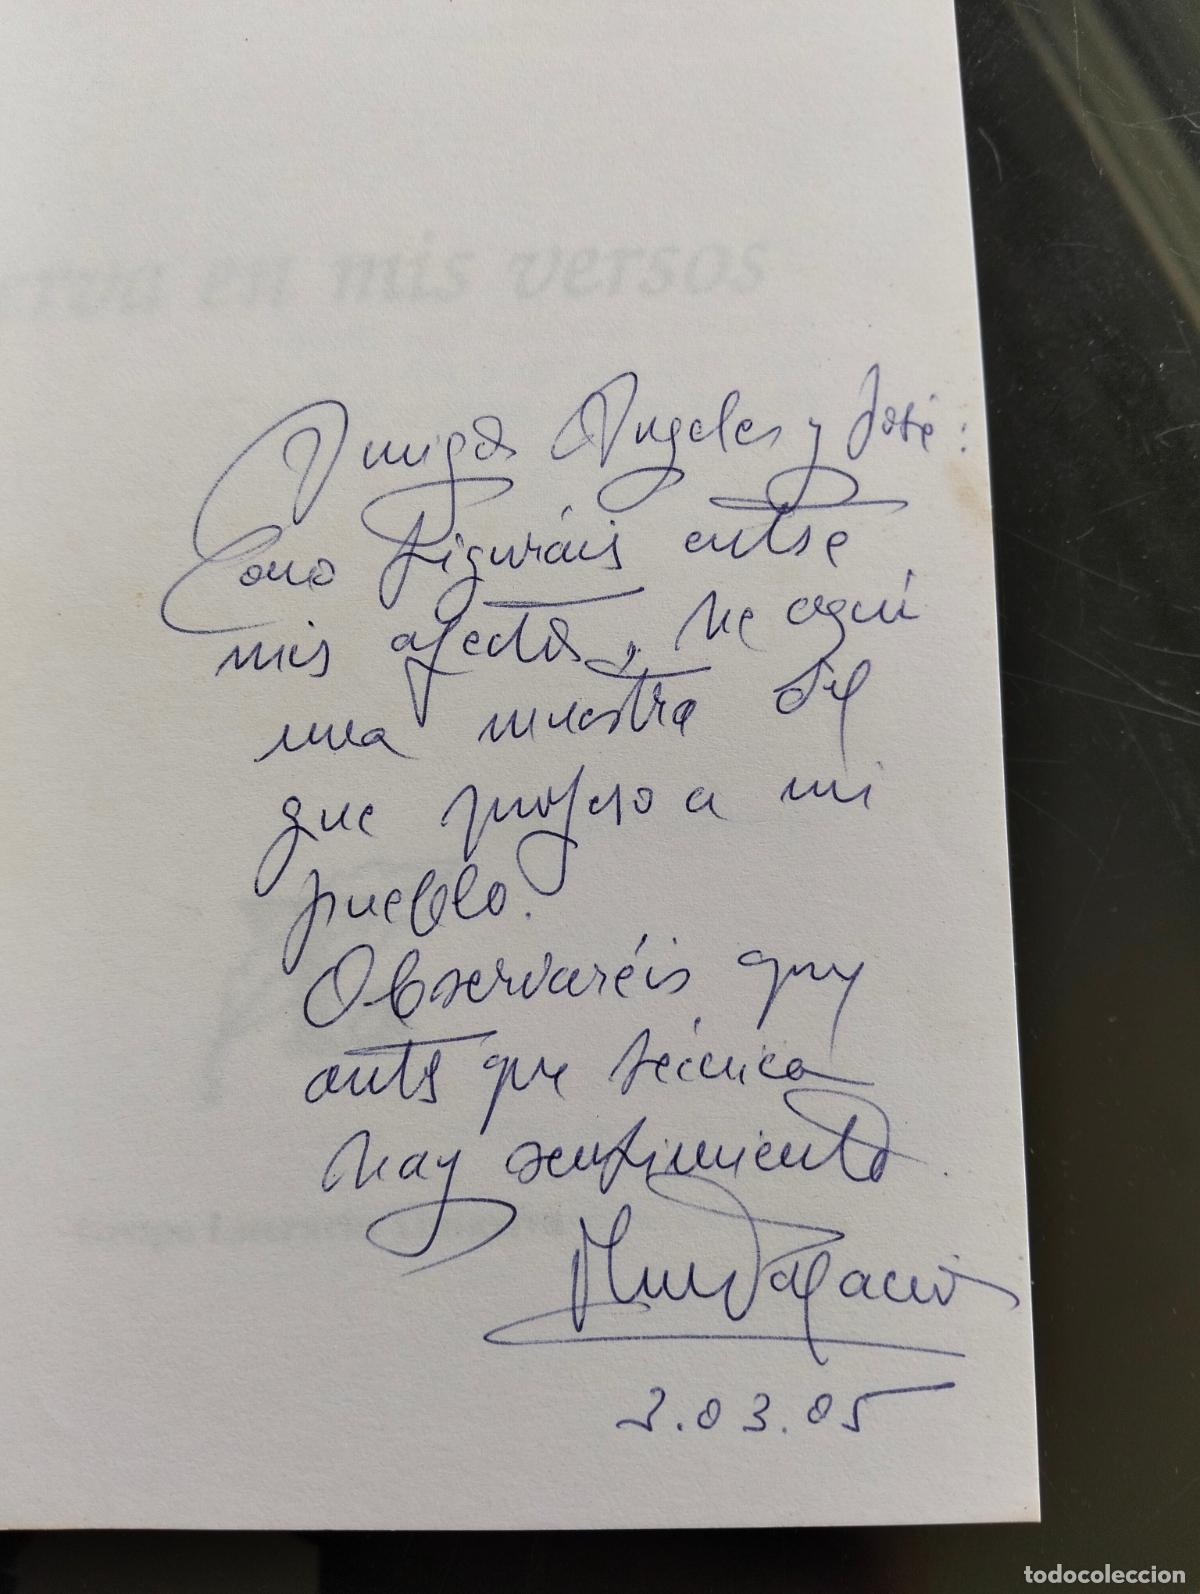 en mis versos
Amigos Angeles y José:
Como figuráis entre
mis afectos, he aquí
una muestra del
que profeso a mi
pueblo.
Observaréis que
antes que técnica
hay sentimiento.
3.03.05
todocoleccion